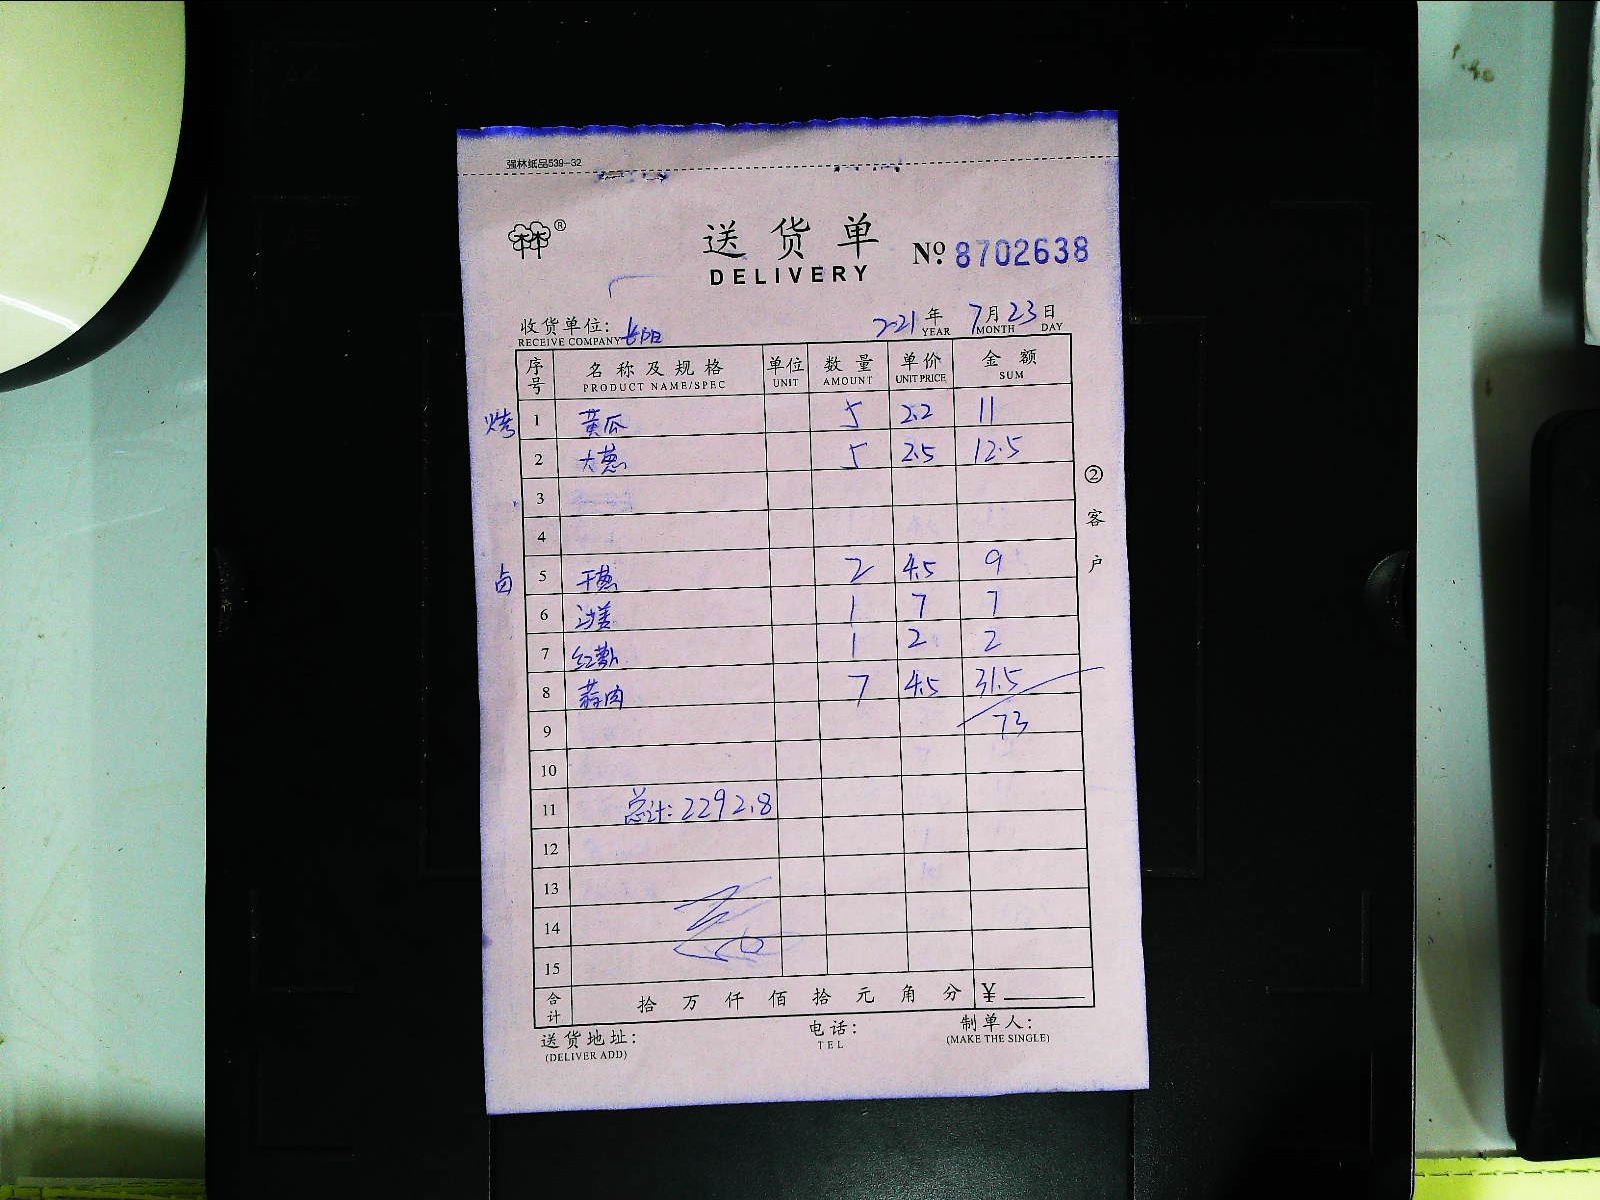 强林纸品539-32
林®
送货单
DELIVERY
No. 8702638
收货单位: 长阳 2021年 7月 23日
RECEIVE COMPANY YEAR MONTH DAY
序号 名称及规格 单位 数量 单价 金额
PRODUCT NAME/SPEC UNIT AMOUNT UNIT PRICE SUM
烤 1 黄瓜 5 2.2 11
2 大葱 5 2.5 12.5
3
4
卤 5 干葱 2 4.5 9
6 沙姜 1 7 7
7 红 1 2 2
8 蒜肉 7 4.5 31.5
9 73
10
11 总计: 2292.8
12
13
14
15
合计 拾 万 仟 佰 拾 元 角 分 ¥
② 客户
送货地址: 电话: 制单人:
(DELIVER ADD) TEL (MAKE THE SINGLE)